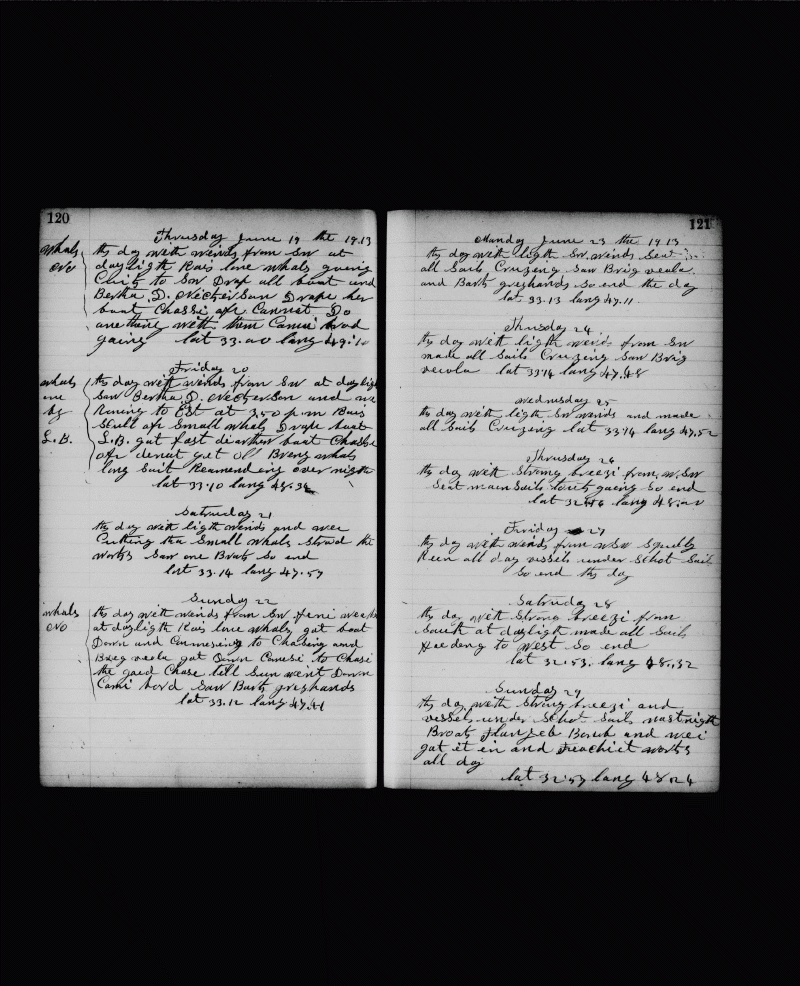 120
Thrusday June 19 the 1913
whals
No
ths day with weinds from SW at
dayligth Rais lone whals going
Quit to SW Drap all boat and
Bertha D. Nickerson Drape her
boat Chassi afr Cannot Do
anething with them Cami bord
gaing lat 33.00 lang 49.10
Friday 20
whals
one
by
L.B.
ths day with weinds from SW at dayligt
Saw Bertha D. Nickerson and we
Runing to Est at 3.50 p.m Rais
Scull afr Small whals Drape boat
L.B. gat fast diarthur boat Chassi
afr denat get all Breng whals
long Suit Reamending over nigth
lat 33.10 lang 48.34
Satruday 21
ths day with ligth weinds and wee
Cutting the Small whals Stroad the
works Saw one Brats So end
lat 33.14 lang 47.57
Sunday 22
whals
No
ths day with weinds from SW feni weather
at dayligth Rais lone whals gat boat
Down and Cummesing to Chasing and
Breg veola gat Down Camesi to Chasi
the gaed Chase till Sun went Down
Cami bord Saw Bark greshands
lat 33.12 lang 47.41
121
Munday June 23 the 1913
ths day with ligth SW weinds Seat
all Sails Cruzing Saw Brig veola
and Bark greyhands So end the day
lat 33.13 lang 47.11
Thusday 24
ths day with ligth weinds from SW
made all Sails Cruzing Saw Brig
veiola lat 33.14 lang 47.48
wednusday 25
ths day with ligth SW weinds and made
all Sails Cruizing lat 33.14 lang 47.52
Thrusday 26
ths day with Strong breezi from W.SW
Seat main Sails to its gaing So end
lat 32.46 lang 48.00
Friday 27
ths day with weinds from WSW Squelly
Reen all day vessels under Schot Sail
So end ths day
Satruday 28
ths day with Strong breezi from
South at dayligth made all Sails
Heedeng to West So end
lat 32.53 lang 48.32
Sunday 29
ths day with Strong breezi and
vessels under Schot Sails nastnigth
Broat flan Jeb Boruk and wei
gat it in and works
all day
lat 32.59 lang 48.24